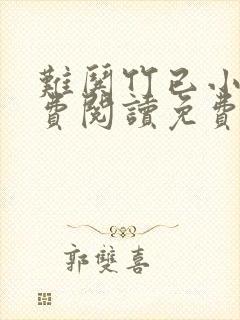 難鬪竹已小
費閱讀免費
郭雙喜